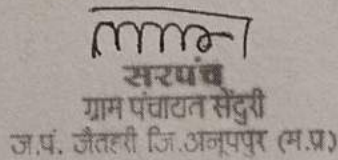 सरपंच
ग्राम पंचायत सेंदुरी
ज.पं. जैतहरी जि.अनूपपुर (म.प्र)